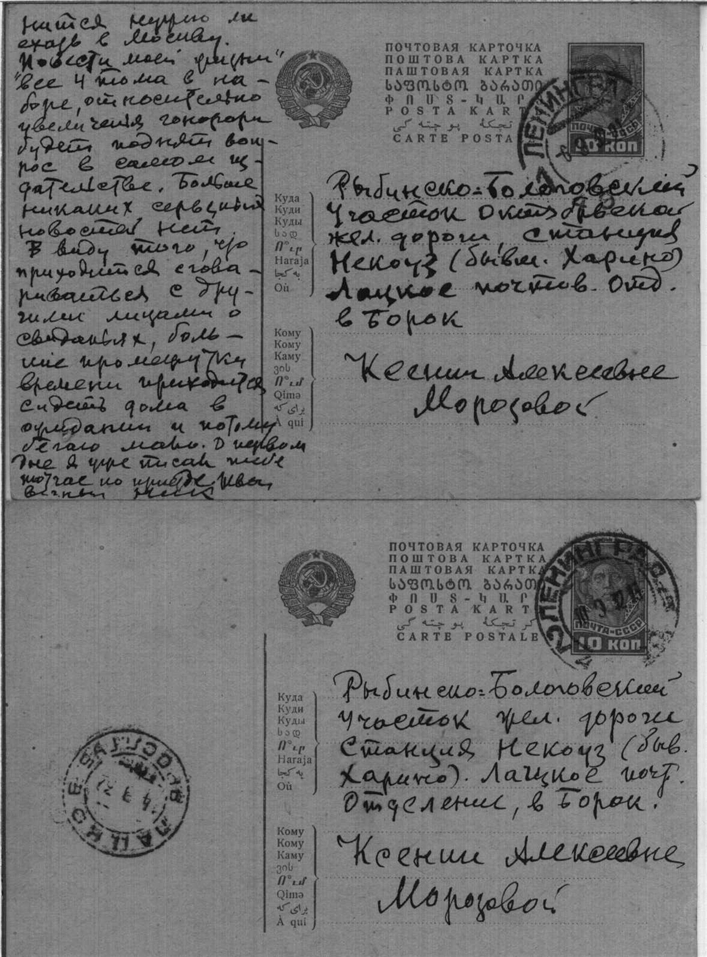 нится нужно ли
ехать в Москву.
"Повести моей жизни"
все 4 тома в на-
боре, относительно
увеличения гонорара
будет поднят воп-
рос в самом из-
дательстве. Больше
никаких
новостей нет.
В виду того, что
приходится сгова-
риваться с дру-
гими лицами о
свиданьях, боль-
шие промежутки
времени приходится
сидеть дома в
ожидании и потому
бегаю мало. О первом
дне я уже писал тебе
тотчас по
ПОЧТОВАЯ КАРТОЧКА
ПОШТОВА КАРТКА
ПАШТОВАЯ КАРТКА
ᲡᲐᲤᲝᲡᲢᲝ ᲑᲐᲠᲐᲗᲘ
ՓՈՍՏ-ՔԱՐՏ
POSTA KARTЬ
CARTE POSTALE
ЛЕНИНГРАД
ПОЧТА СССР
10 КОП
Куда
Куди
Куды
სად
Ո՞ւր
Haraja
Où
Рыбинско=Бологовский
Участок Октябрьской
жел. дороги, станция
Некоуз (бывш. Харино)
Лацкое почтов. Отд.
в Борок
Кому
Кому
Каму
ვის
Ո՞ւմ
Qimə
À qui
Ксении Алексеевне
Морозовой
ПОЧТОВАЯ КАРТОЧКА
ПОШТОВА КАРТКА
ПАШТОВАЯ КАРТКА
ᲡᲐᲤᲝᲡᲢᲝ ᲑᲐᲠᲐᲗᲘ
ՓՈՍՏ-ՔԱՐՏ
POSTA KARTЬ
CARTE POSTALE
ЛЕНИНГРАД
ПОЧТА-СССР
10 КОП
Куда
Куди
Куды
სად
Ո՞ւր
Haraja
Où
Рыбинско=Бологовский
Участок жел. дороги
Станция Некоуз (быв.
Харино). Лацкое почт.
Отделение, в Борок.
ЛАЦКОЕ ЯРОСЛАВ
Кому
Кому
Каму
ვის
Ո՞ւմ
Qimə
À qui
Ксении Алексеевне
Морозовой